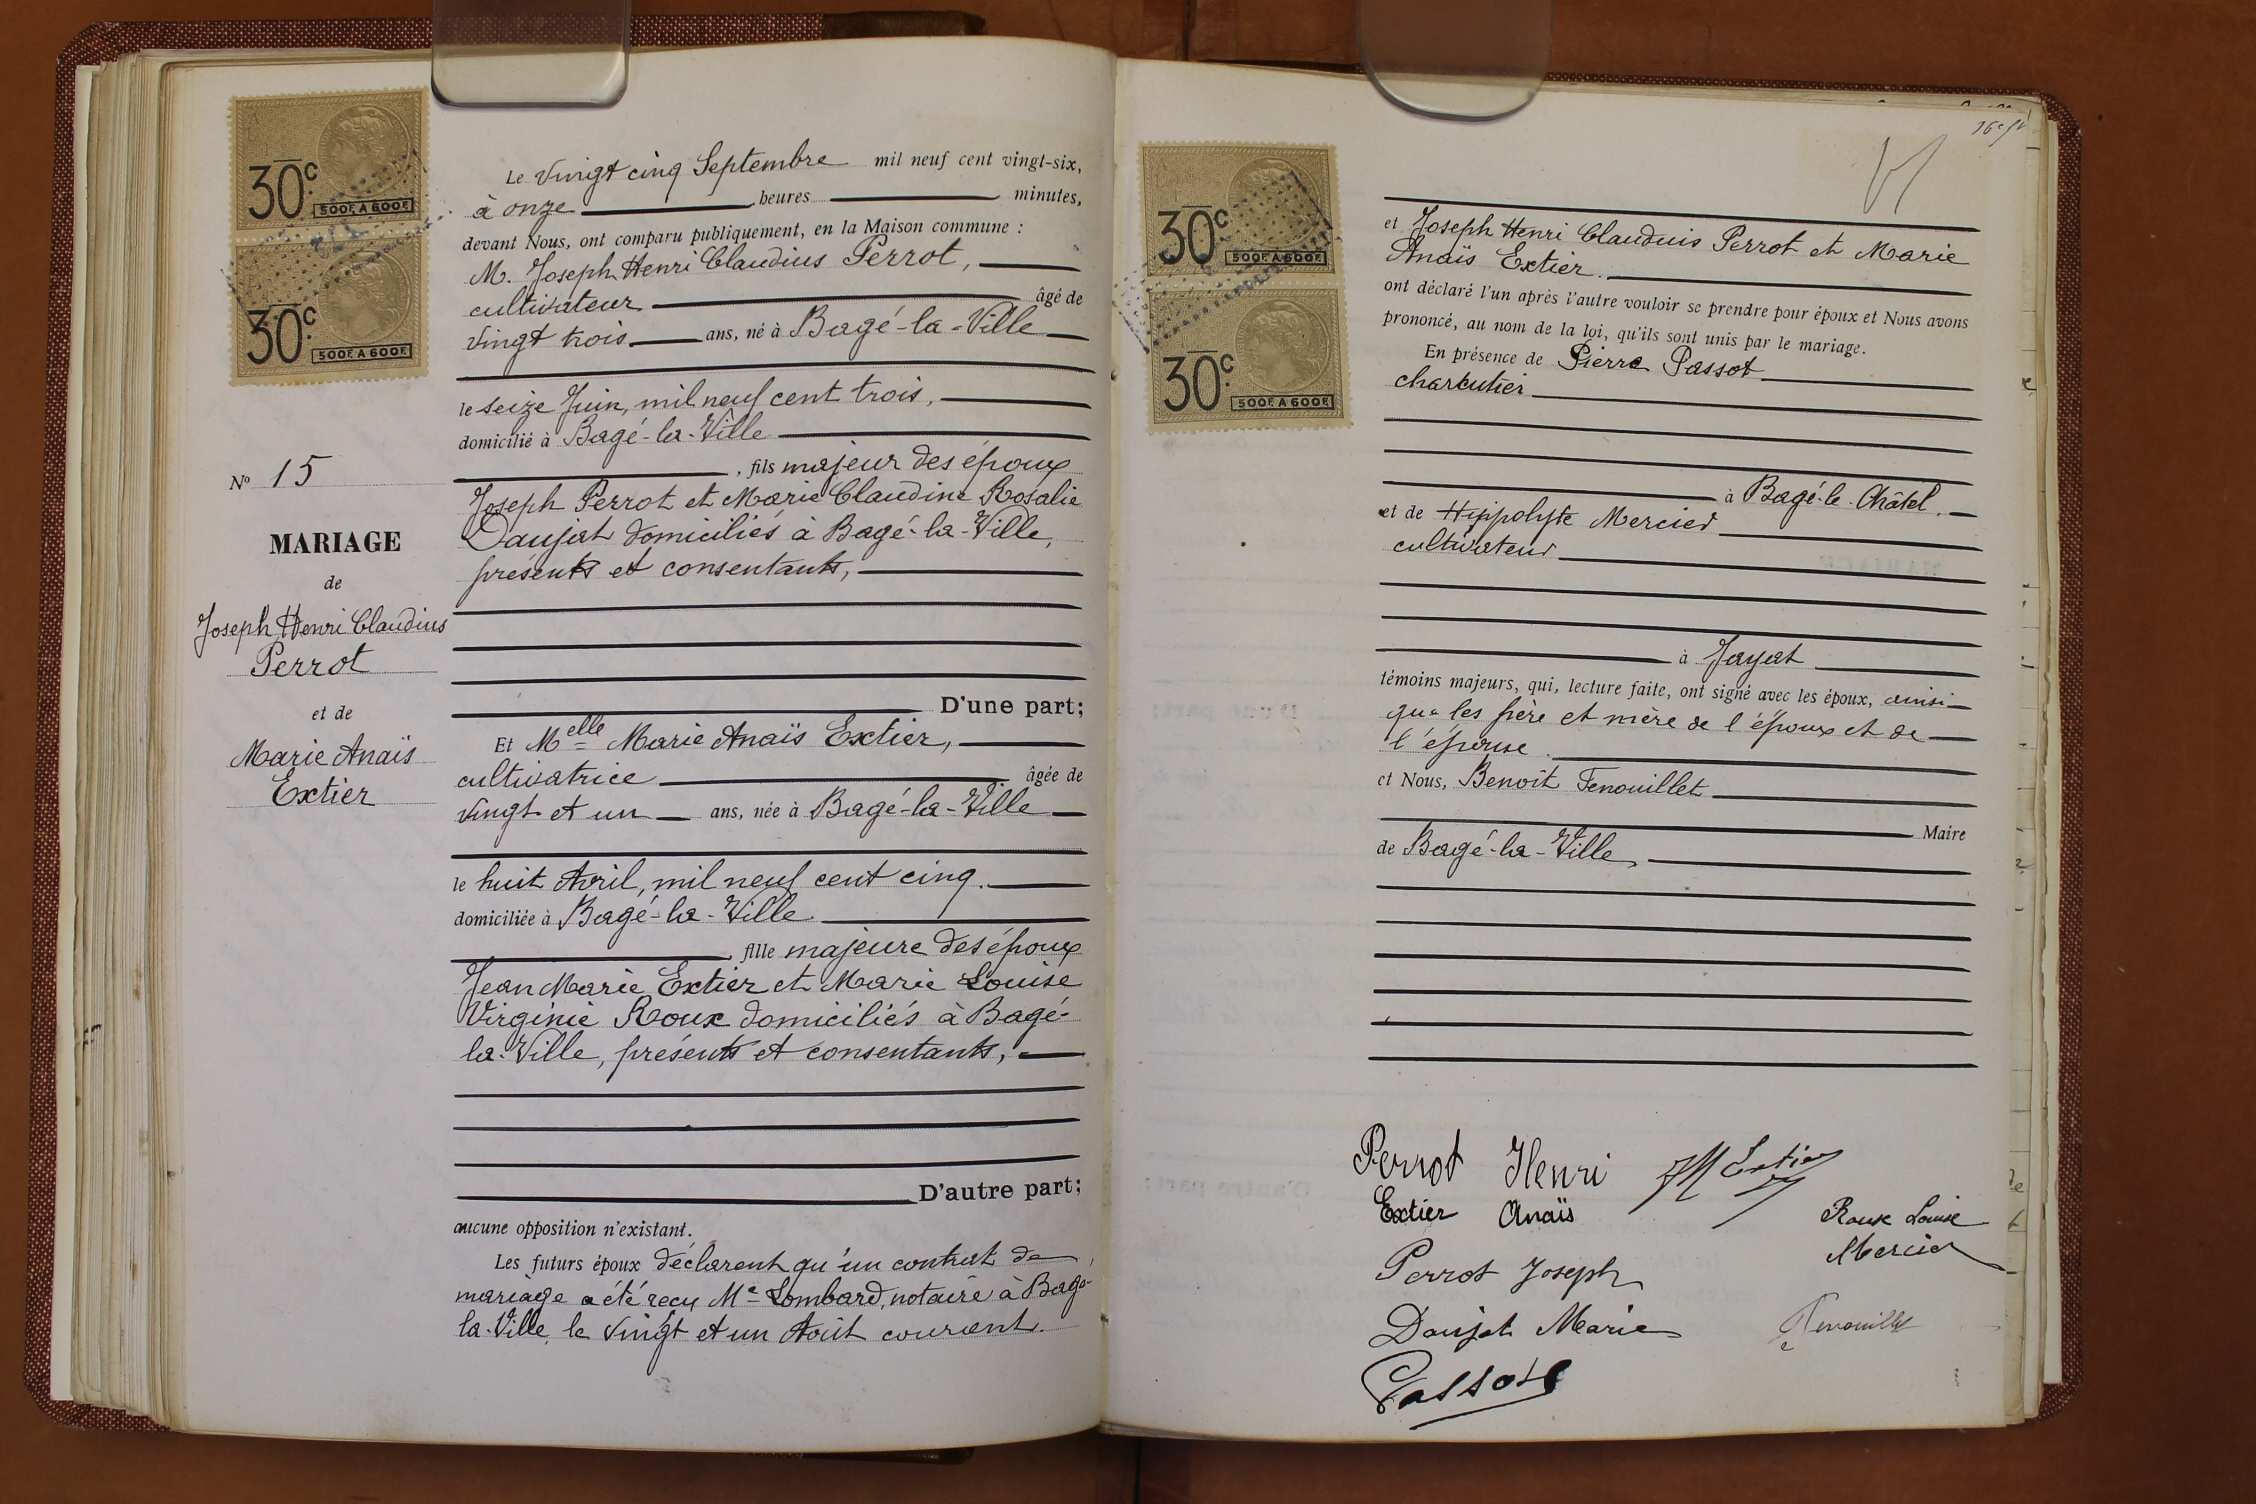 30c
500F. A 600F.
30c
500F. A 600F.
No 15
MARIAGE
de
Joseph Henri Claudius
Perrot
et de
Marie Anaïs
Extier
Le vingt cinq Septembre mil neuf cent vingt-six,
à onze heures minutes,
devant Nous, ont comparu publiquement, en la Maison commune :
M. Joseph Henri Claudius Perrot,
cultivateur âgé de
vingt trois ans, né à Bagé-la-Ville
le seize Juin, mil neuf cent trois,
domicilié à Bagé-la-Ville
, fils majeur des époux
Joseph Perrot et Marie Claudine Rosalie
Daujat domiciliés à Bagé-la-Ville,
présents et consentants,
D'une part;
Et Melle Marie Anaïs Extier,
cultivatrice âgée de
vingt et un ans, née à Bagé-la-Ville
le huit Avril, mil neuf cent cinq.
domiciliée à Bagé-la-Ville
, fille majeure des époux
Jean Marie Extier et Marie Louise
Virginie Roux domiciliés à Bagé-
la-Ville, présents et consentants,
D'autre part;
aucune opposition n'existant.
Les futurs époux déclarent qu'un contrat de
mariage a été reçu Me Lombard, notaire à Bagé-
la-Ville, le vingt et un Août courant.
30c
500F. A 600F.
30c
500F. A 600F.
et Joseph Henri Claudius Perrot et Marie
Anaïs Extier.
ont déclaré l'un après l'autre vouloir se prendre pour époux et Nous avons
prononcé, au nom de la loi, qu'ils sont unis par le mariage.
En présence de Pierre Passot
charcutier
à Bagé-le-Châtel.
et de Hippolyte Mercier
cultivateur
à Jayat
témoins majeurs, qui, lecture faite, ont signé avec les époux, ainsi
que les père et mère de l'époux et de
l'épouse.
et Nous, Benoît Fenouillet
Maire
de Bagé-la-Ville,
Perrot Henri JM Extier
Extier Anaïs
Roux Louise
Mercier
Perrot Joseph
Daujat Marie
Fenouillet
Passot